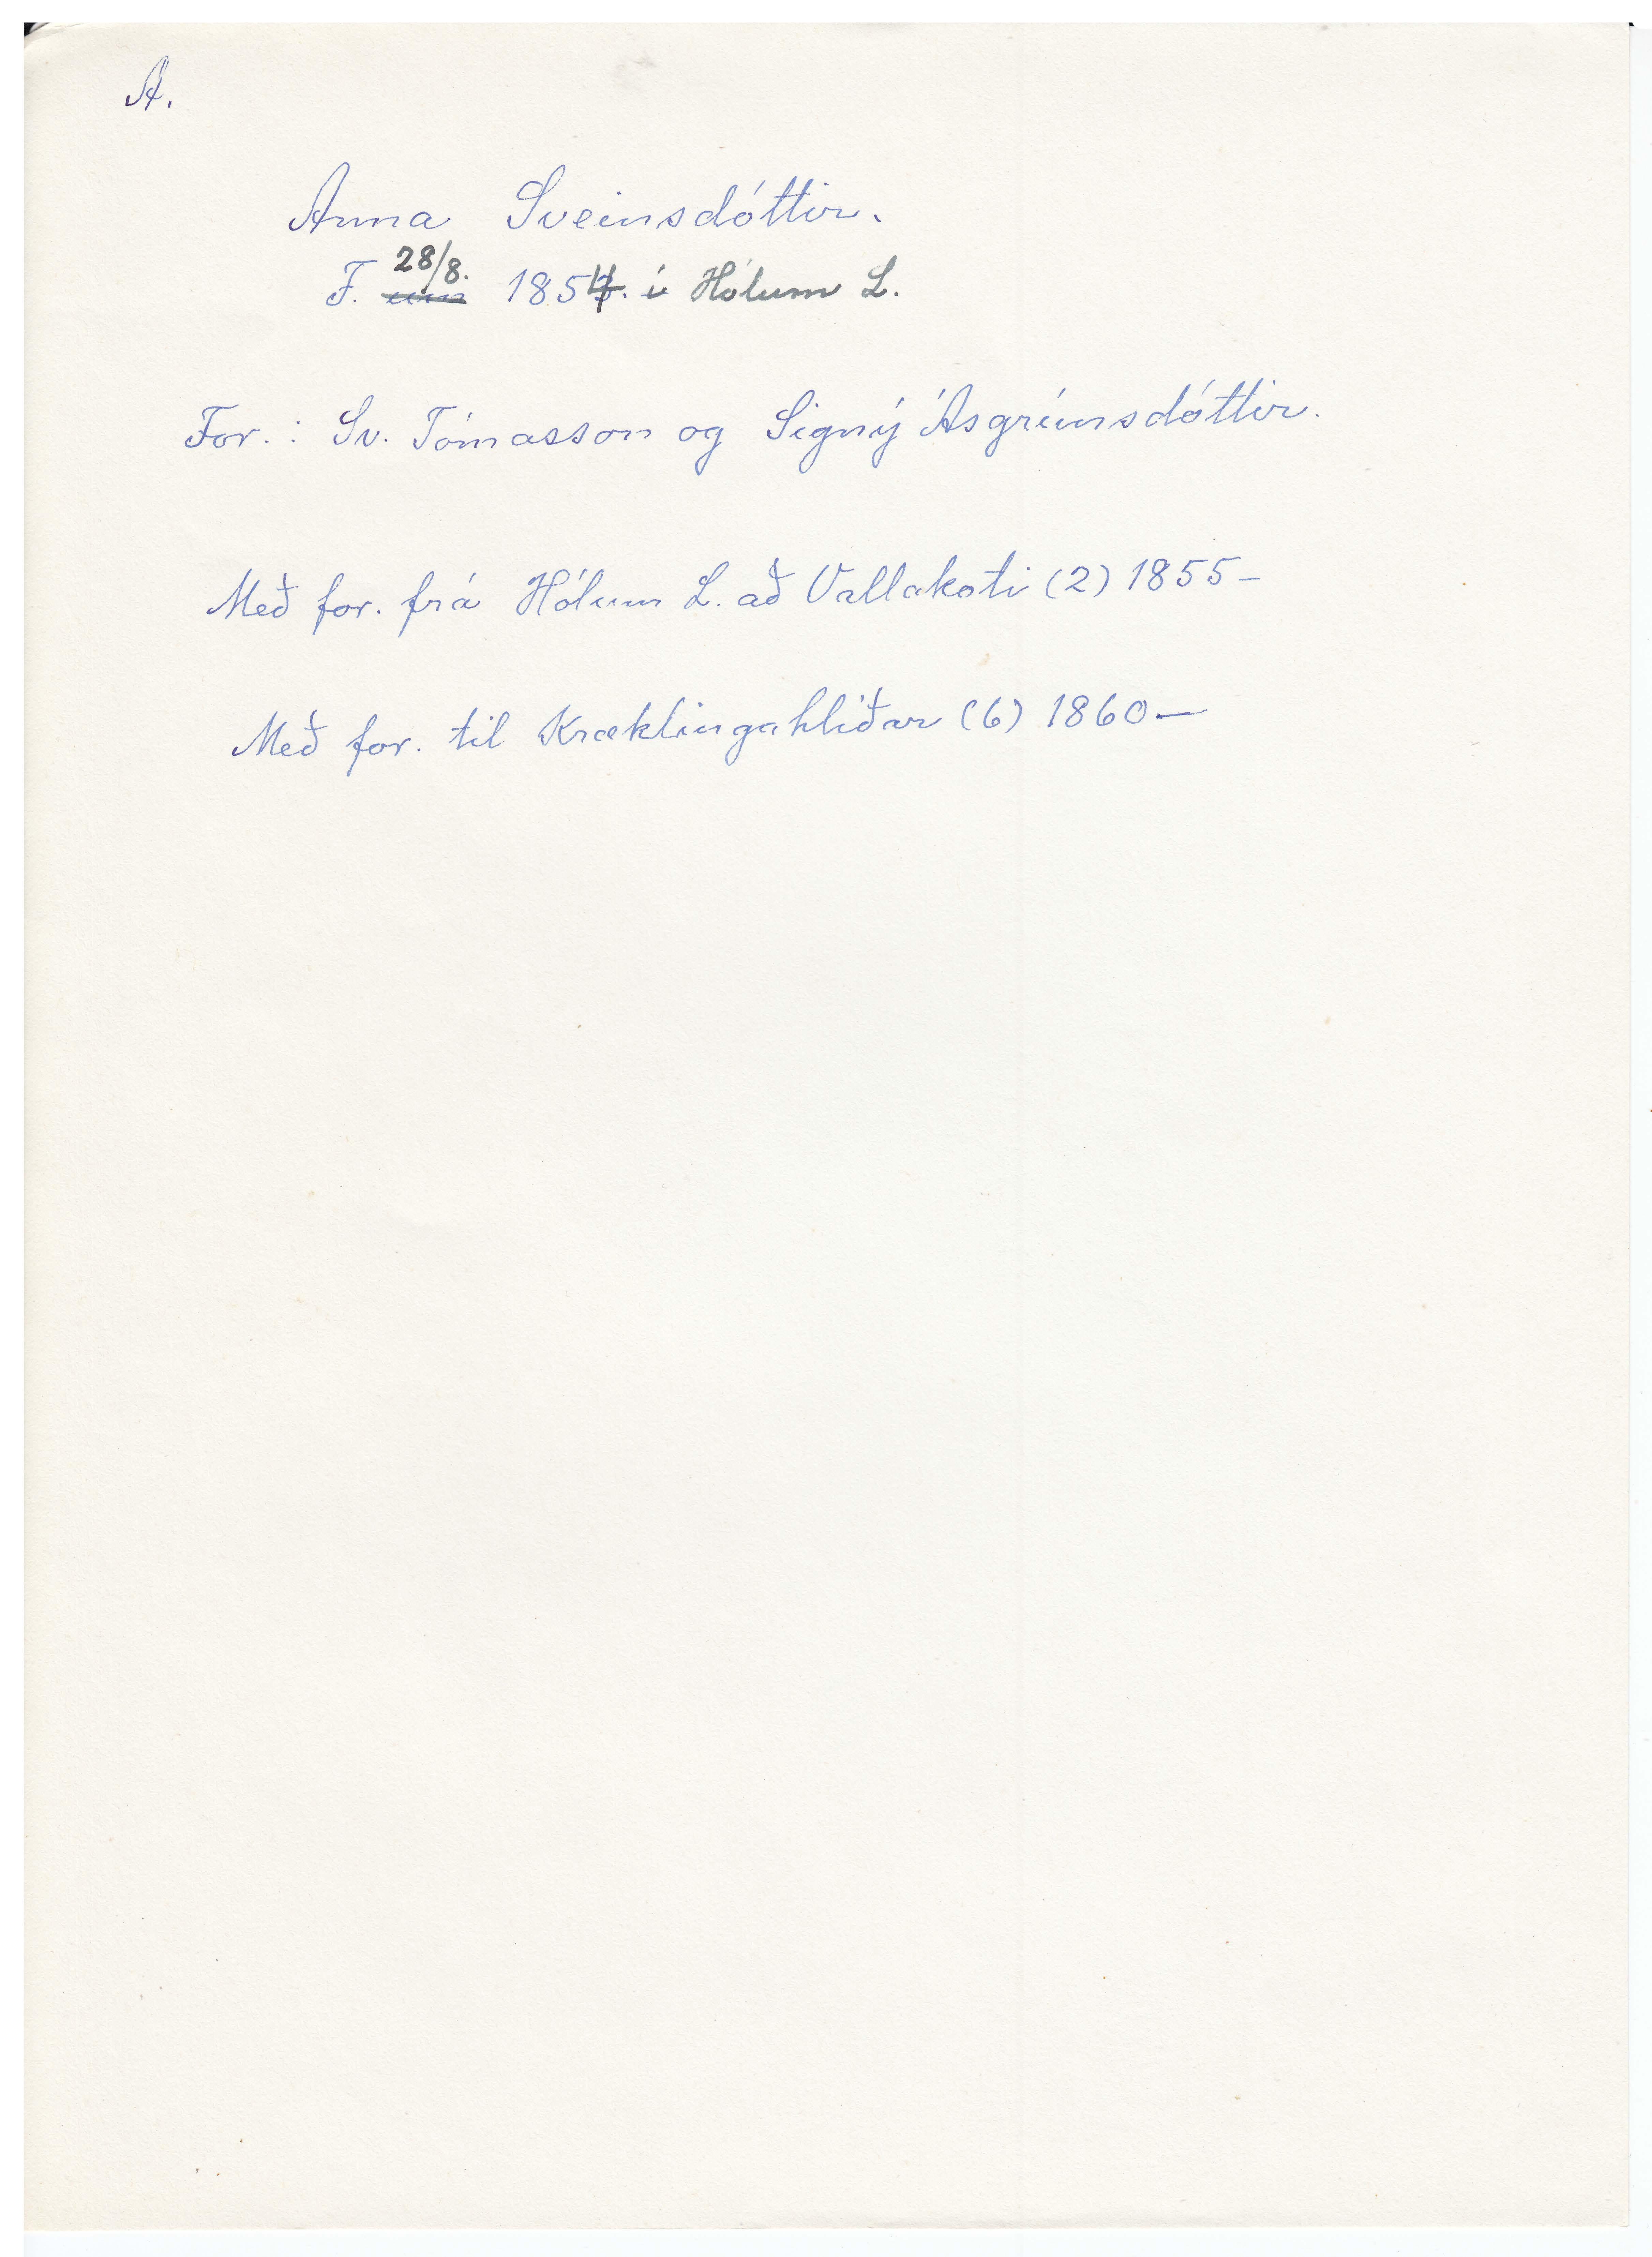 A.
Anna Sveinsdóttir.
F. 28/8. 1854. í Hólum L.
For.: Sv. Tómasson og Signý Ásgrímsdóttir.
Með for. frá Hólum L. að Vallakoti (2) 1855-
Með for. til Kræklingahlíðar (6) 1860-